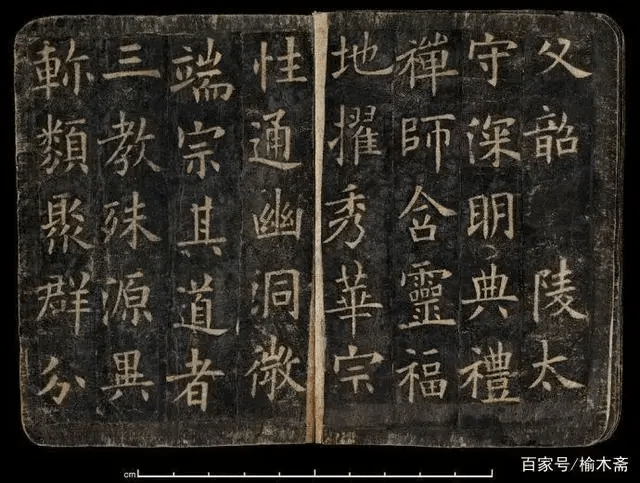 父韶 陵太
守深明典禮
禪師含靈福
地擢秀華宗
性通幽洞微
端宗其道者
三教殊源異
軫類聚群分
cm
百家号/榆木斋